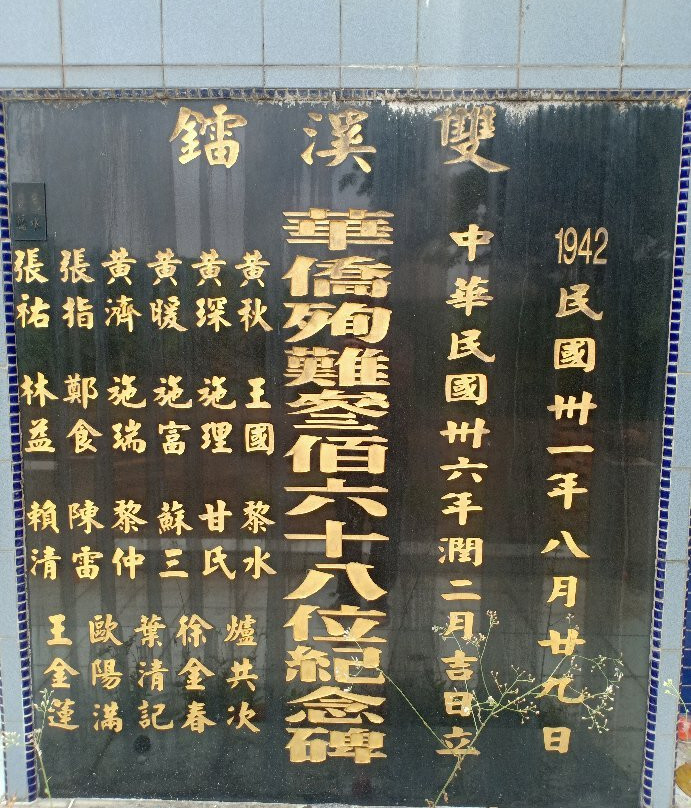 雙溪鐳
1942民國卅一年八月廿九日
中華民國卅六年潤二月吉日立
華僑殉難叁佰六十八位紀念碑
黃秋 王國 黎水 爐共次
黃琛 施理 甘氏 徐金春
黃暖 施富 蘇三 葉清記
黃濟 施瑞 黎仲 歐陽滿
張指 鄭食 陳雷 王金蓮
張祐 林益 賴清